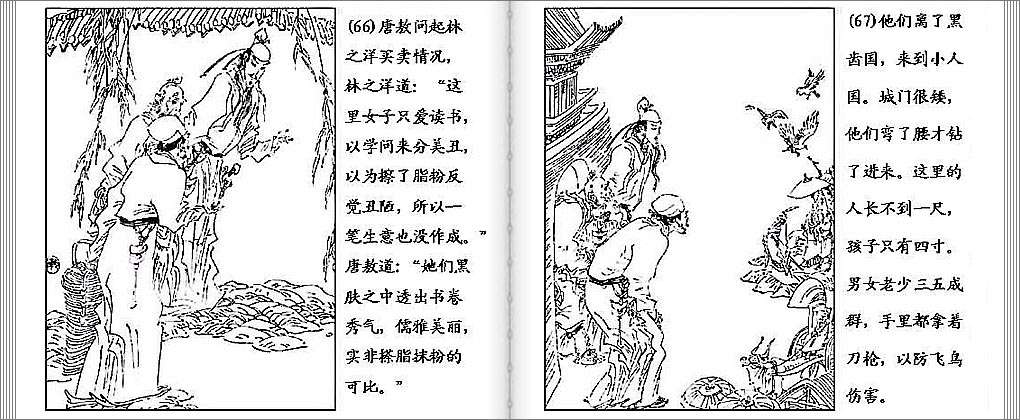 (66)唐敖问起林
之洋买卖情况，
林之洋道：“这
里女子只爱读书，
以学问来分美丑，
以为擦了脂粉反
觉丑陋，所以一
笔生意也没作成。”
唐敖道：“她们黑
肤之中透出书卷
秀气，儒雅美丽，
实非搽脂抹粉的
可比。”
(67)他们离了黑
齿国，来到小人
国。城门很矮，
他们弯了腰才钻
了进来。这里的
人长不到一尺，
孩子只有四寸。
男女老少三五成
群，手里都拿着
刀枪，以防飞鸟
伤害。